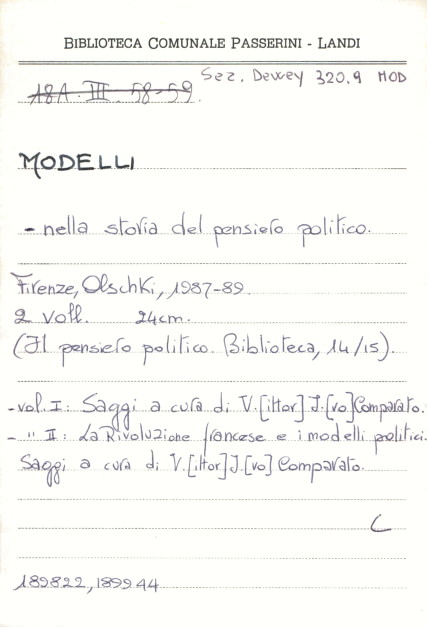 BIBLIOTECA COMUNALE PASSERINI - LANDI
Sez. Dewey 320.9 MOD
18A. III. 58-59.
MODELLI
- nella storia del pensiero politico.
Firenze, Olschki, 1987-89.
2 voll. 24cm.
(Il pensiero politico. Biblioteca, 14/15).
- vol. I: Saggi a cura di V.[ittor] I.[vo] Comparato.
- " II: La Rivoluzione francese e i modelli politici.
Saggi a cura di V.[ittor] I.[vo] Comparato.
C
189822, 189944